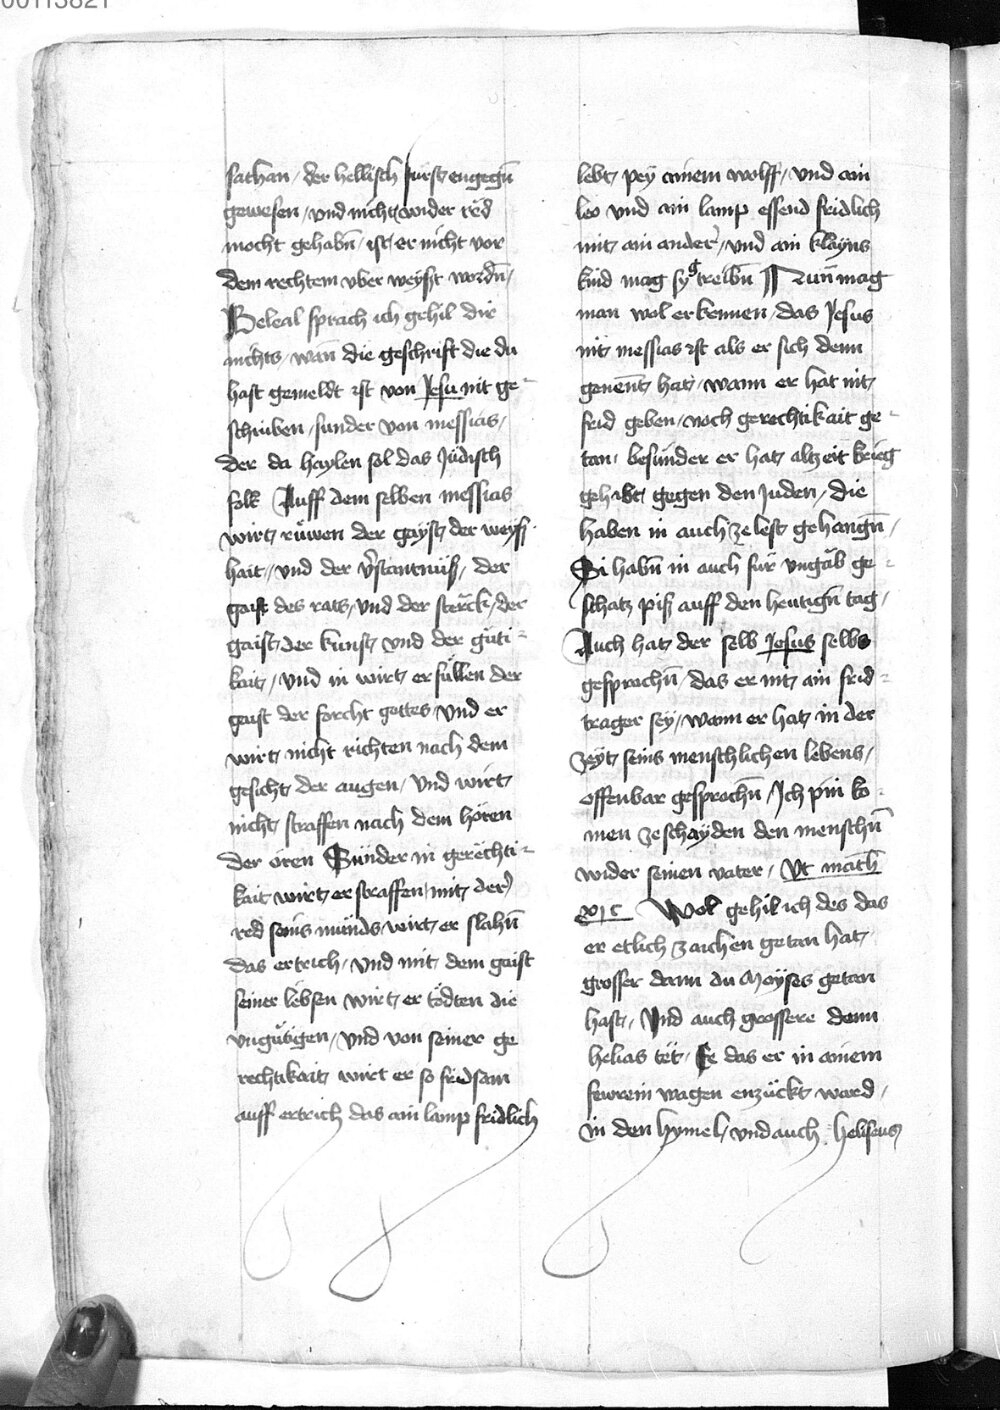 00113821
sathan / der hellisch fürst engegn̄
gewesen / vnd nicht wider red
mocht gehabn̄ / ist er nicht vor
dem rechtem vber weyst wordn̄ /
Beleal sprach ich gehil dir
nichts / wan̄ die geschrift die du
hast gemeldt ist von Jesu nit ge-
schriben / sunder von messias /
der da haylen sol das Jüdisch
folk Auff dem selben messias
wirt růwen der gayst der weyß-
hait / vnd der v̓stantnüß / der
gaist des rats / vnd der sterck / der
gaist der kunst vnd der güti-
kait / vnd in wirt er füllen der
gaist der forcht gottes vnd er
wirt nicht richten nach dem
gesicht der augen / vnd wirt
nicht straffen nach dem hören
der oren Sünder in gerechti-
kait wirt er straffen mit der
red seins munds / wirt er slahn̄
das ertrich / vnd mit dem gaist
seiner lebsen wirt er tödten die
vngütigen / vnd von seiner ge
rechtikait wirt er so fridsam
auff ertrich das ain lamp fridlich
lebt pey ainem wolff / vnd ain
leo vnd ain lamp essend fridlich
mit ain ander / vnd ain klayns
kind mag sy treibn̄ Nun̄ mag
man wol erkennen / das Jesus
nit messias ist als er sich denn
genent hat / wann er hat nit
frid geben / noch gerechtikait ge-
tan / besunder er hat altzeit krieg
gehabt gegen den Juden / die
haben in auch ze lest gehangn̄ /
Si habn̄ in auch für vngäb ge-
schatz piß auff den heutign̄ tag /
Auch hat der selb Jesus selbs
gesprochn̄ / das er nit ain frid-
trager sey / wann er hat in der
zeyt seins menschlichen lebens /
offenbar gesprochn̄ / Ich pin ko-
men ze schayden den menschn̄
wider seinen vater / Vt math̄
xjc Wol gehil ich des das
er etlich zaichen getan hat /
grosser dann du Moyses getan
hast / Vnd auch grossere denn
helias tet / Ee das er in ainem
fewrein wagen enzückt ward /
in den hymel / vnd auch heliseus